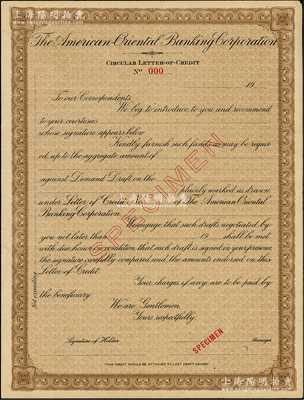 上海陽明拍賣
www.yangmingauction.com
The American-Oriental Banking Corporation
CIRCULAR LETTER-OF-CREDIT
No 000
19
To our Correspondents
We beg to introduce to you and recommend
to your courtesies
whose signature appears below
Kindly furnish such funds as may be requir-
ed, up to the aggregate amount of
against Demand Draft on the
plainly marked as drawn
under Letter of Credit No. The American Oriental
Banking Corporation
We engage that such drafts negotiated by
you not later than 19 shall be met
with due honor on condition that each draft is signed in your presence,
the signature carefully compared and the amounts endorsed on this
Letter of Credit.
Your charges, if any, are to be paid by
the beneficiary
We are Gentlemen,
Yours respectfully,
Not exceeding
SPECIMEN
SPECIMEN
Signature of Holder
Manager
(THIS CREDIT SHOULD BE ATTACHED TO LAST DRAFT DRAWN)
上海陽明拍賣